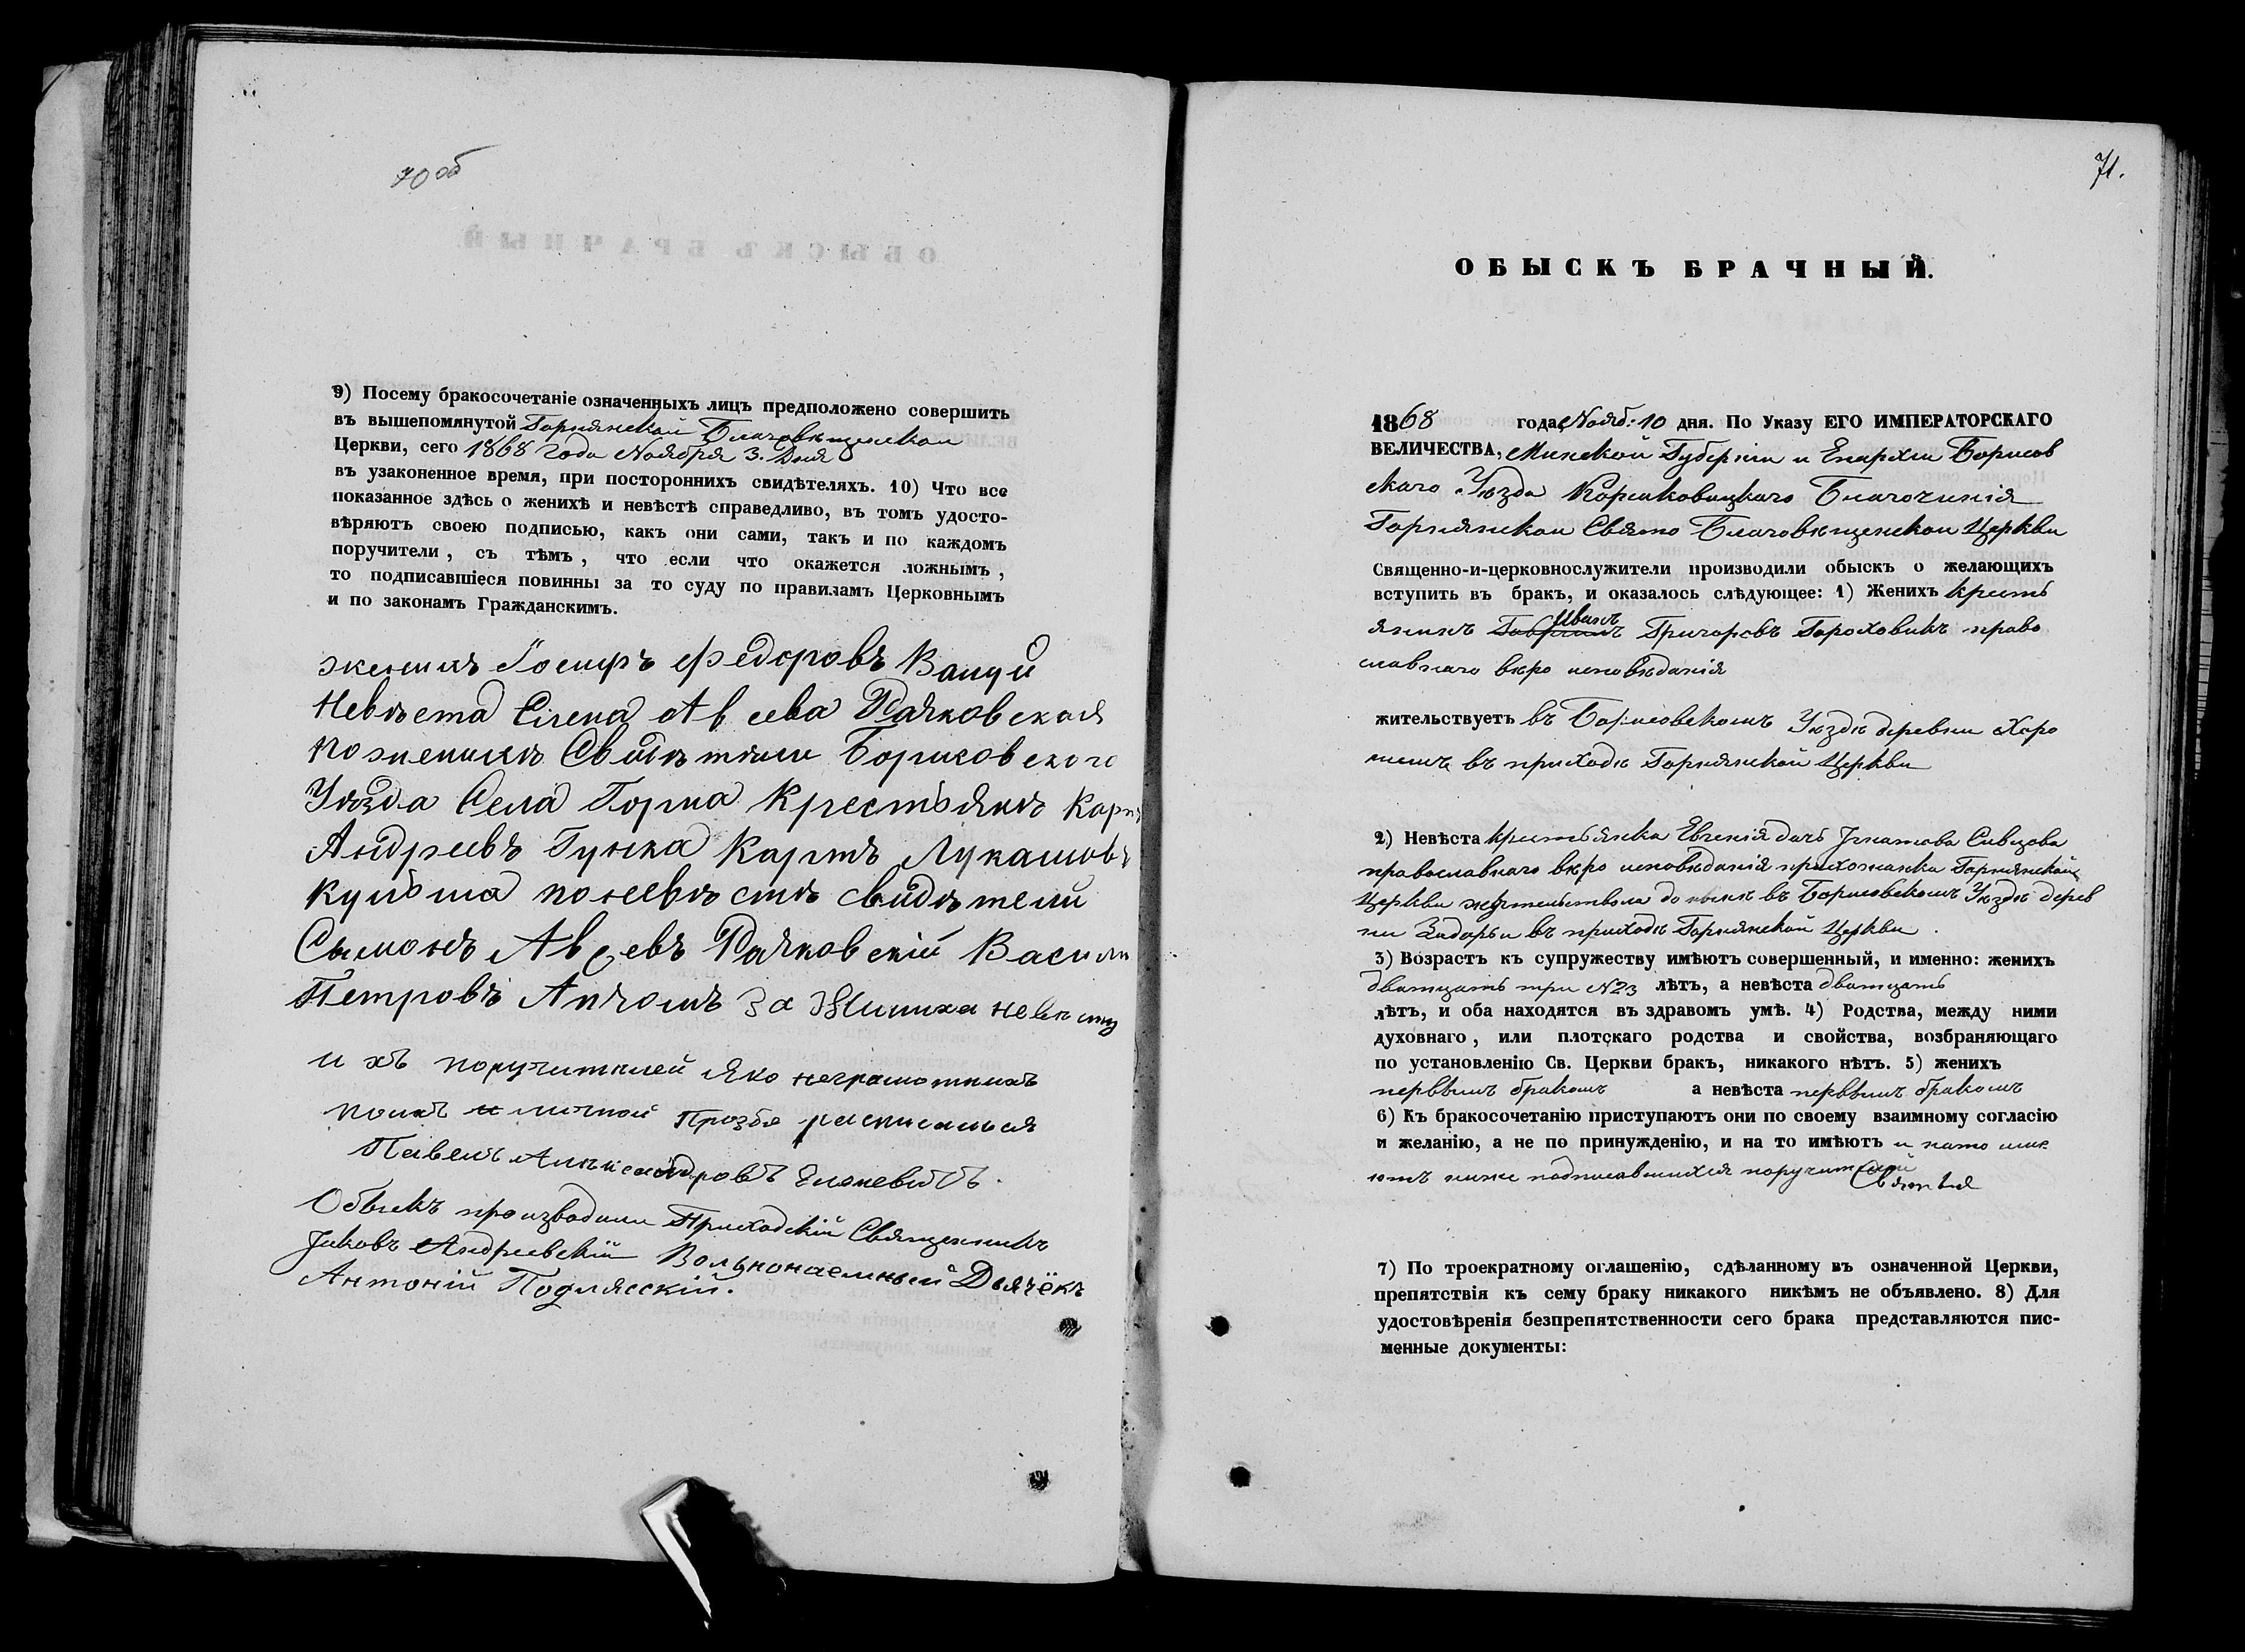 70 об
9) Посему бракосочетаніе означенныхъ лицъ предположено совершить
въ вышепомянутой Горнянской Благовѣщенской
Церкви, сего 1868 года Ноября 3. Дня
въ узаконенное время, при постороннихъ свидѣтеляхъ. 10) Что все
показанное здѣсь о женихѣ и невѣстѣ справедливо, въ томъ удосто-
вѣряютъ своею подписью, какъ они сами, такъ и по каждомъ
поручители, съ тѣмъ, что если что окажется ложнымъ,
то подписавшіеся повинны за то суду по правиламъ Церковнымъ
и по законамъ Гражданскимъ.
женихъ Іосифъ Федоровъ
Невѣста Елена Авсева
Борисовского
Уѣзда Села Горна Крестьянъ
Андреевъ Гунка Карпъ Лукашовъ
свидѣтели
Сымонъ Авсевъ Василі
Петровъ за Жиниха невѣсту
и хъ поручителей яко неграмотныхъ
личной прозбѣ росписался
Павелъ
Обыскъ производили Приходскій Священникъ
Іаковъ Андреевскій Вольнонаемный Дьячёкъ
Антоній Подлясскій.
71.
ОБЫСКЪ БРАЧНЫЙ.
1868 года Нояб: 10 дня. По Указу ЕГО ИМПЕРАТОРСКАГО
ВЕЛИЧЕСТВА, Минской Губерніи и Епархіи Борисов
скаго Уѣзда Корсаковицкаго Благочинія
Горнянской Свято Благовѣщенской Церкви
Священно-и-церковнослужители производили обыскъ о желающихъ
вступить въ бракъ, и оказалось слѣдующее: 1) Женихъ кресть
янинъ Иванъ Григоровъ Гороховикъ право
славнаго вѣро исповѣданія
жительствуетъ въ Борисовскомъ Уѣздѣ деревни Хоро
въ приходѣ Горнянской Церкви
2) Невѣста крестьянка Евгенія дочь Игнатова Сивцова
православнаго вѣро исповѣданія прихожанка Горнянской
Церкви жительствола до нынѣ въ Борисовскомъ Уѣздѣ дерев
ни Задорьи въ приходѣ Горнянской Церкви.
3) Возрастъ къ супружеству имѣютъ совершенный, и именно: женихъ
дватцать три №23 лѣтъ, а невѣста дватцать
лѣтъ, и оба находятся въ здравомъ умѣ. 4) Родства, между ними
духовнаго, или плотскаго родства и свойства, возбраняющаго
по установленію Св. Церкви бракъ, никакого нѣтъ. 5) женихъ
первымъ бракомъ а невѣста первымъ бракомъ
6) Къ бракосочетанію приступаютъ они по своему взаимному согласію
и желанію, а не по принужденію, и на то имѣютъ и нато имѣ
ютъ ниже подписавшихся поручителей
7) По троекратному оглашенію, сдѣланному въ означенной Церкви,
препятствія къ сему браку никакого никѣмъ не объявлено. 8) Для
удостовѣренія безпрепятственности сего брака представляются пис-
менные документы: